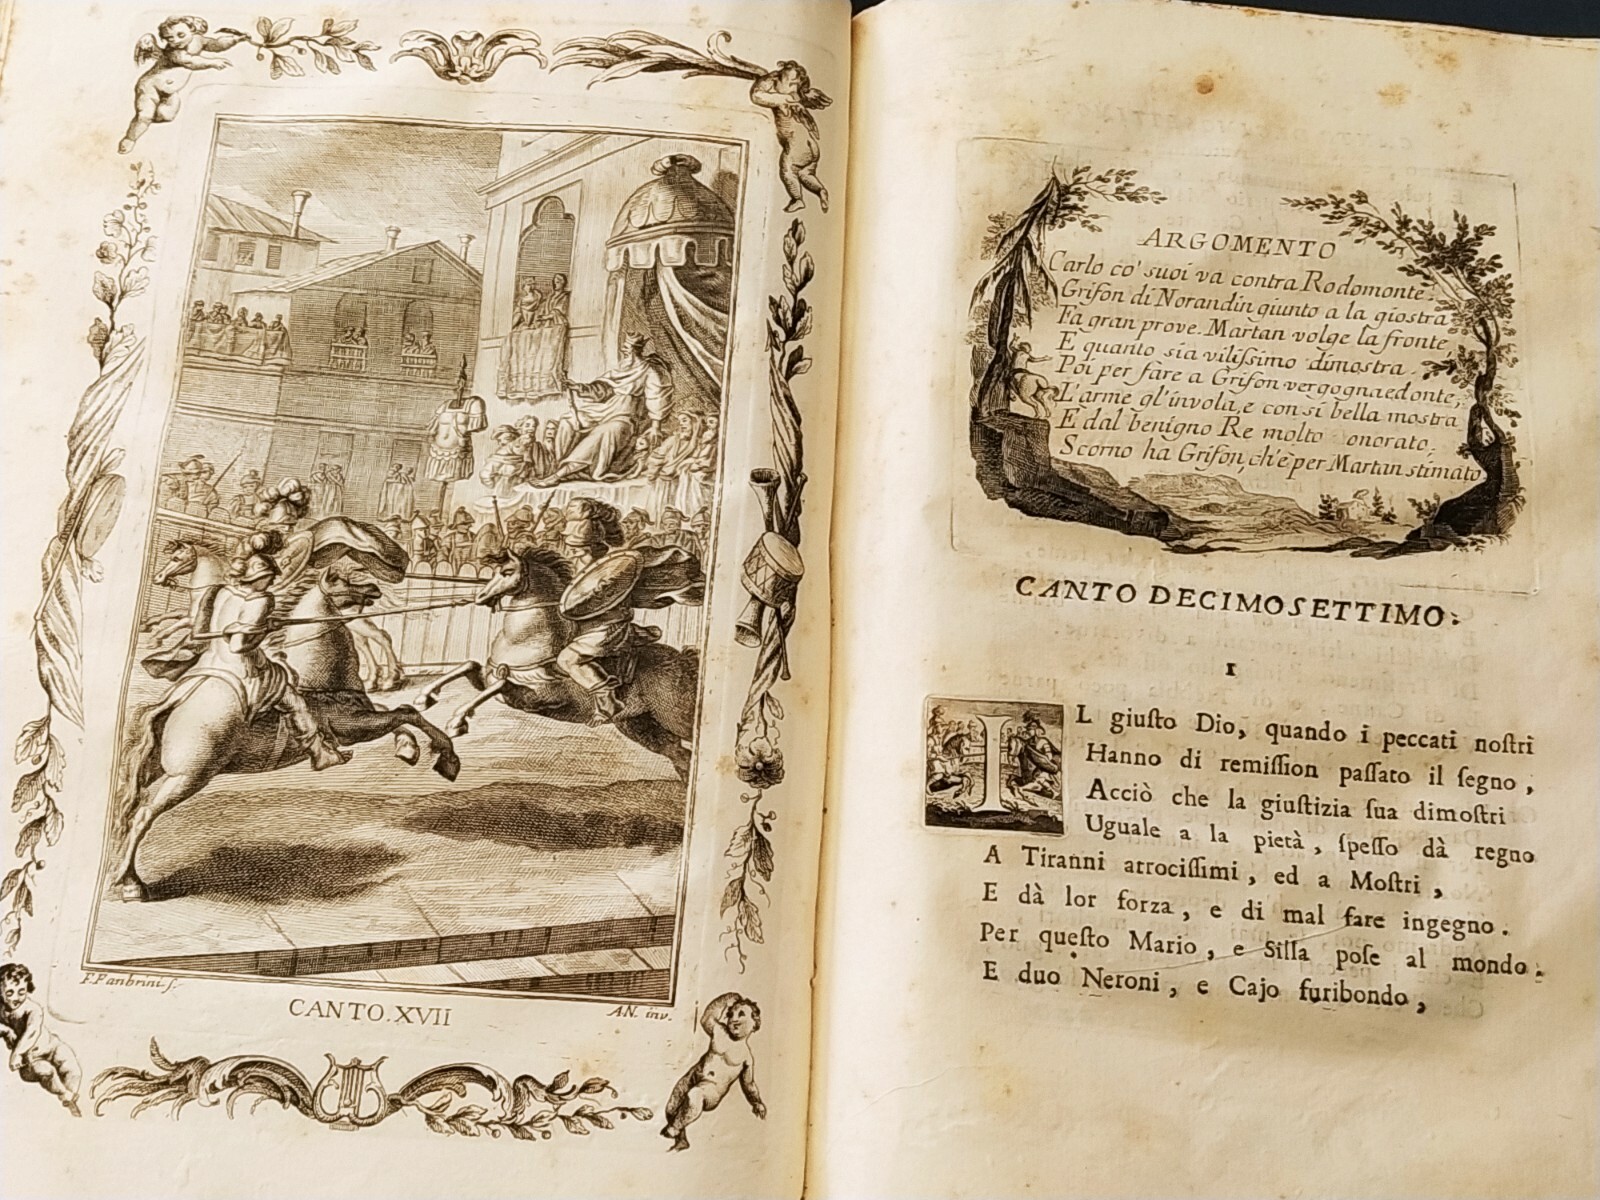 F. Fanbrini. f.
CANTO. XVII
A.N. inv.
ARGOMENTO
Carlo co' suoi va contra Rodomonte.
Grifon di Norandin giunto a la giostra
Fa gran prove. Martan volge la fronte,
E quanto sia viliſsimo dimostra.
Poi per fare a Grifon vergogna ed onte,
L'arme gl'invola, e con sì bella mostra
E dal benigno Re molto onorato;
Scorno ha Grifon, ch'è per Martan stimato.
CANTO DECIMOSETTIMO.
I
IL giuſto Dio, quando i peccati noſtri
Hanno di remiſſion paſſato il ſegno,
Acciò che la giuſtizia ſua dimoſtri
Uguale a la pietà, ſpeſſo dà regno
A Tiranni atrociſſimi, ed a Moſtri,
E dà lor forza, e di mal fare ingegno.
Per queſto Mario, e Silla poſe al mondo.
E duo Neroni, e Cajo furibondo,